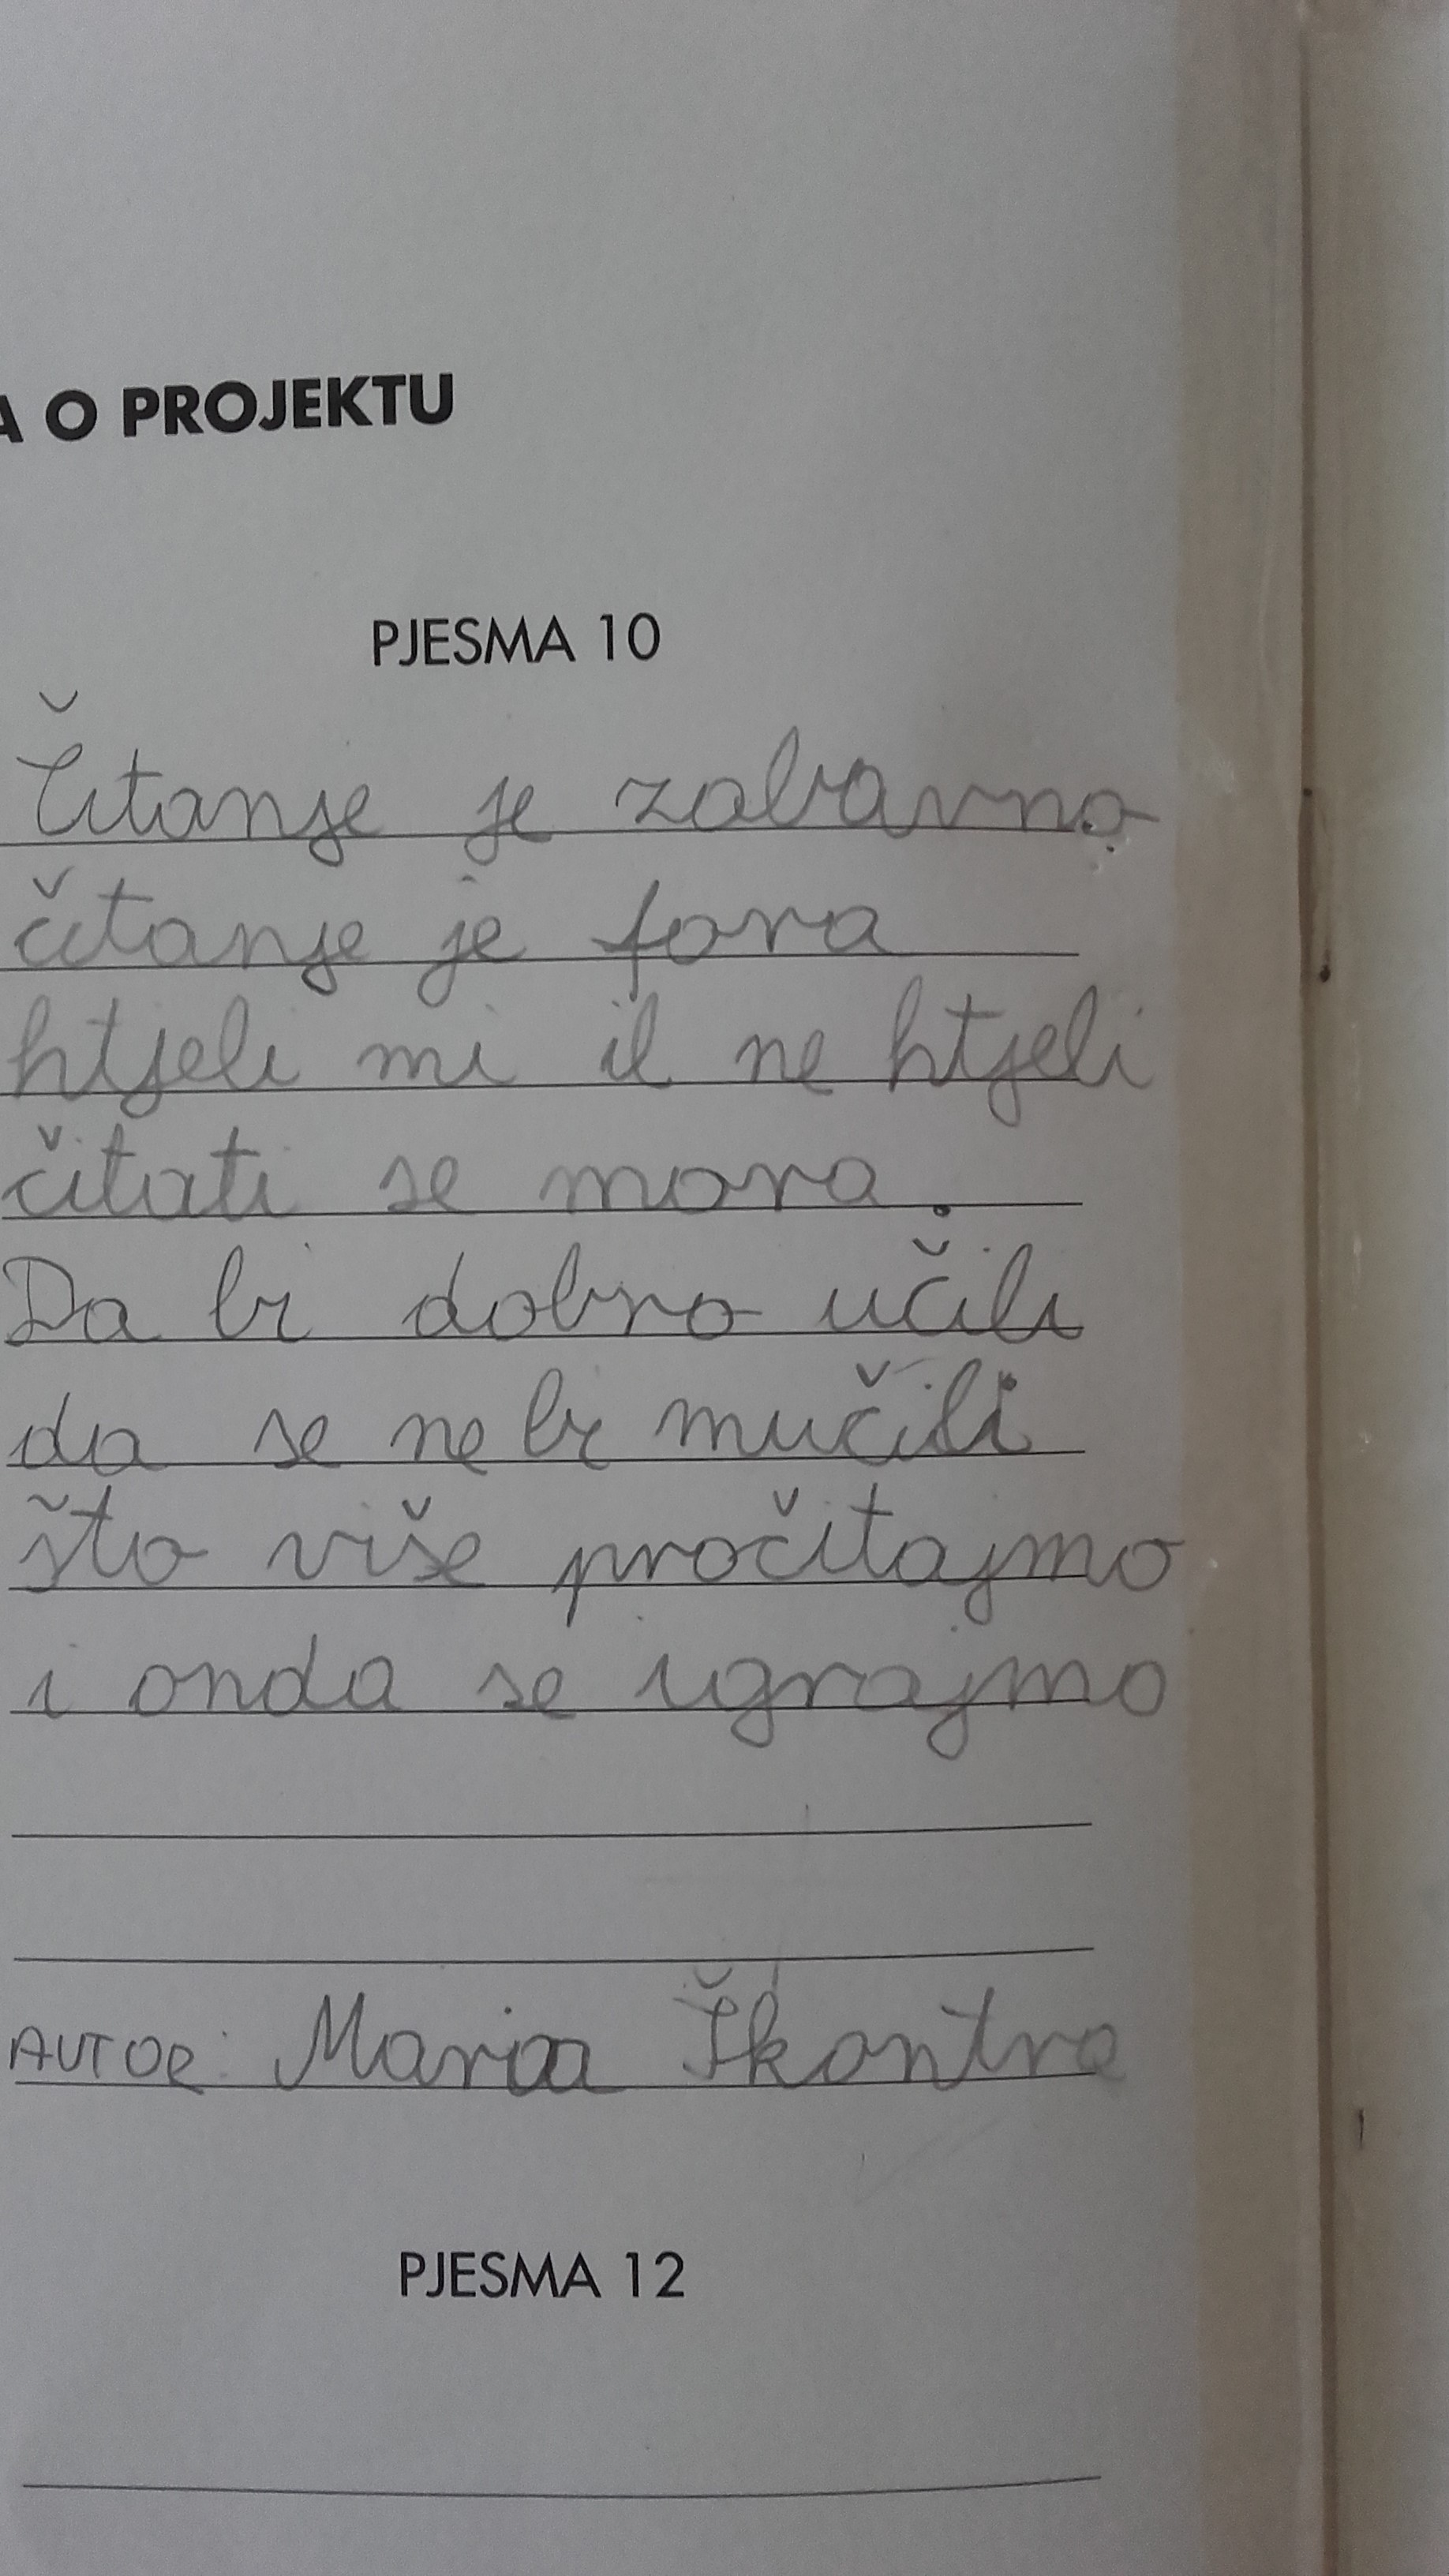 A O PROJEKTU
PJESMA 10
Čitanje je zabavno
čitanje je fora
htjeli mi il ne htjeli
čitati se mora.
Da bi dobro učili
da se ne bi mučili
što više pročitajmo
i onda se igrajmo
AUTOR: Maria Škontra
PJESMA 12